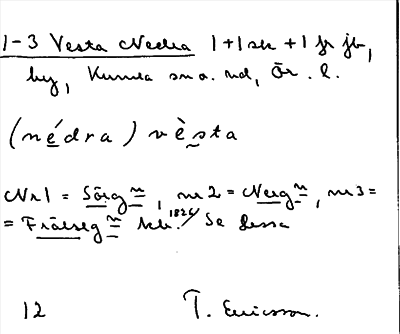 1-3 Vesta Nedra 1+1 sk + 1 fr jb,
by, Kumla sn o. hd, Ör. l.
(nédra) vèsta
Nr 1 = Sörg~, nr 2 = Nerg~, nr 3 =
= Frälseg~ 1826 Se dessa
12 T. Ericsson.